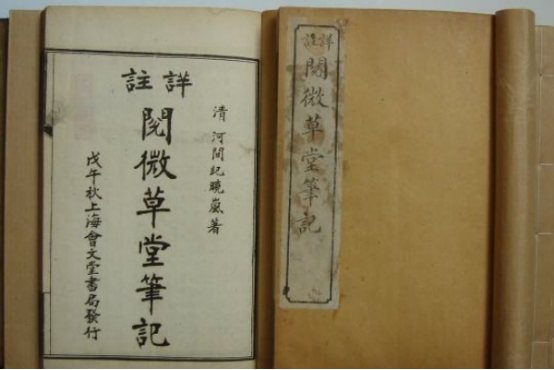 詳註
清 河間紀曉嵐著
閱微草堂筆記
戊午秋上海會文堂書局發行
詳註
閱微草堂筆記